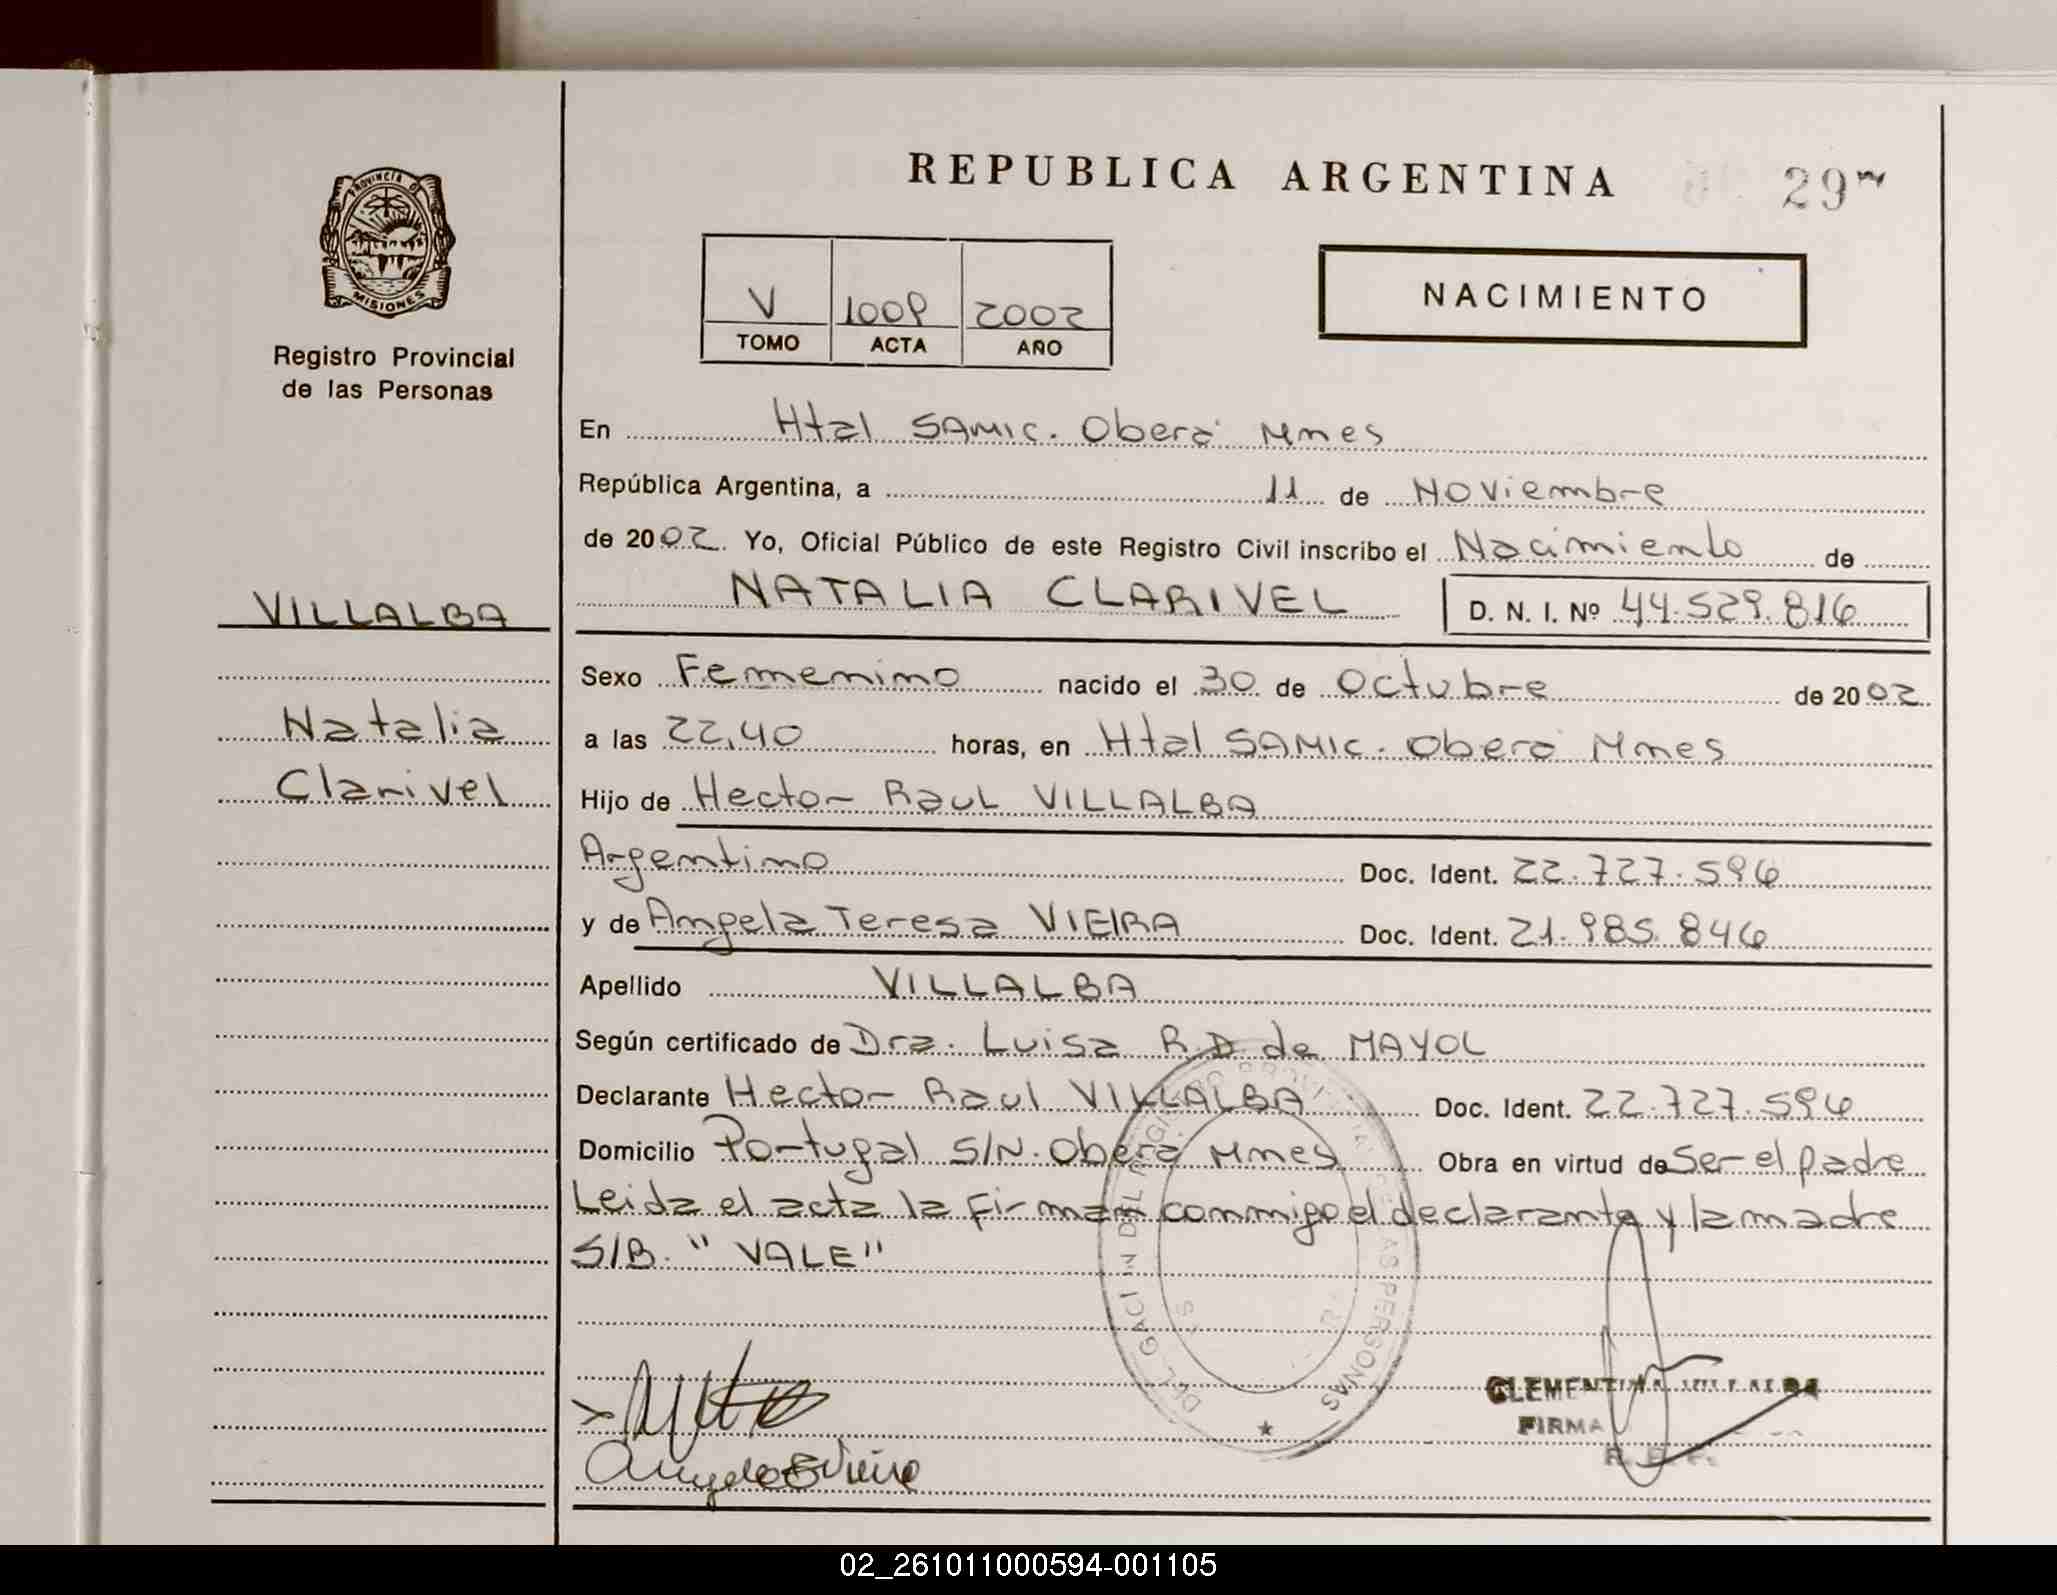 REPUBLICA ARGENTINA
29
PROVINCIA DE
MISIONES
Registro Provincial
de las Personas
V 1009 2002
TOMO ACTA AÑO
NACIMIENTO
En Htal SAMIC. Oberá Mnes
República Argentina, a 11 de Noviembre
de 2002. Yo, Oficial Público de este Registro Civil inscribo el Nacimiento de
NATALIA CLARIVEL D. N. I. Nº 44.529.816
VILLALBA
Natalia
Clarivel
Sexo Femenino nacido el 30 de Octubre de 2002
a las 22,40 horas, en Htal SAMIC. Oberá Mnes
Hijo de Hector Raul VILLALBA
Argentino Doc. Ident. 22.727.596
y de Angela Teresa VIEIRA Doc. Ident. 21.985.846
Apellido VILLALBA
Según certificado de Dra. Luisa R.D de MAYOL
Declarante Hector Raul VILLALBA Doc. Ident. 22.727.596
Domicilio Portugal S/N. Oberá Mnes Obra en virtud de Ser el padre
Leida el acta la firman conmigo el declarante y la madre
S/B. "VALE"
PERSONAS
CLEMENTINA
FIRMA
02_261011000594-001105